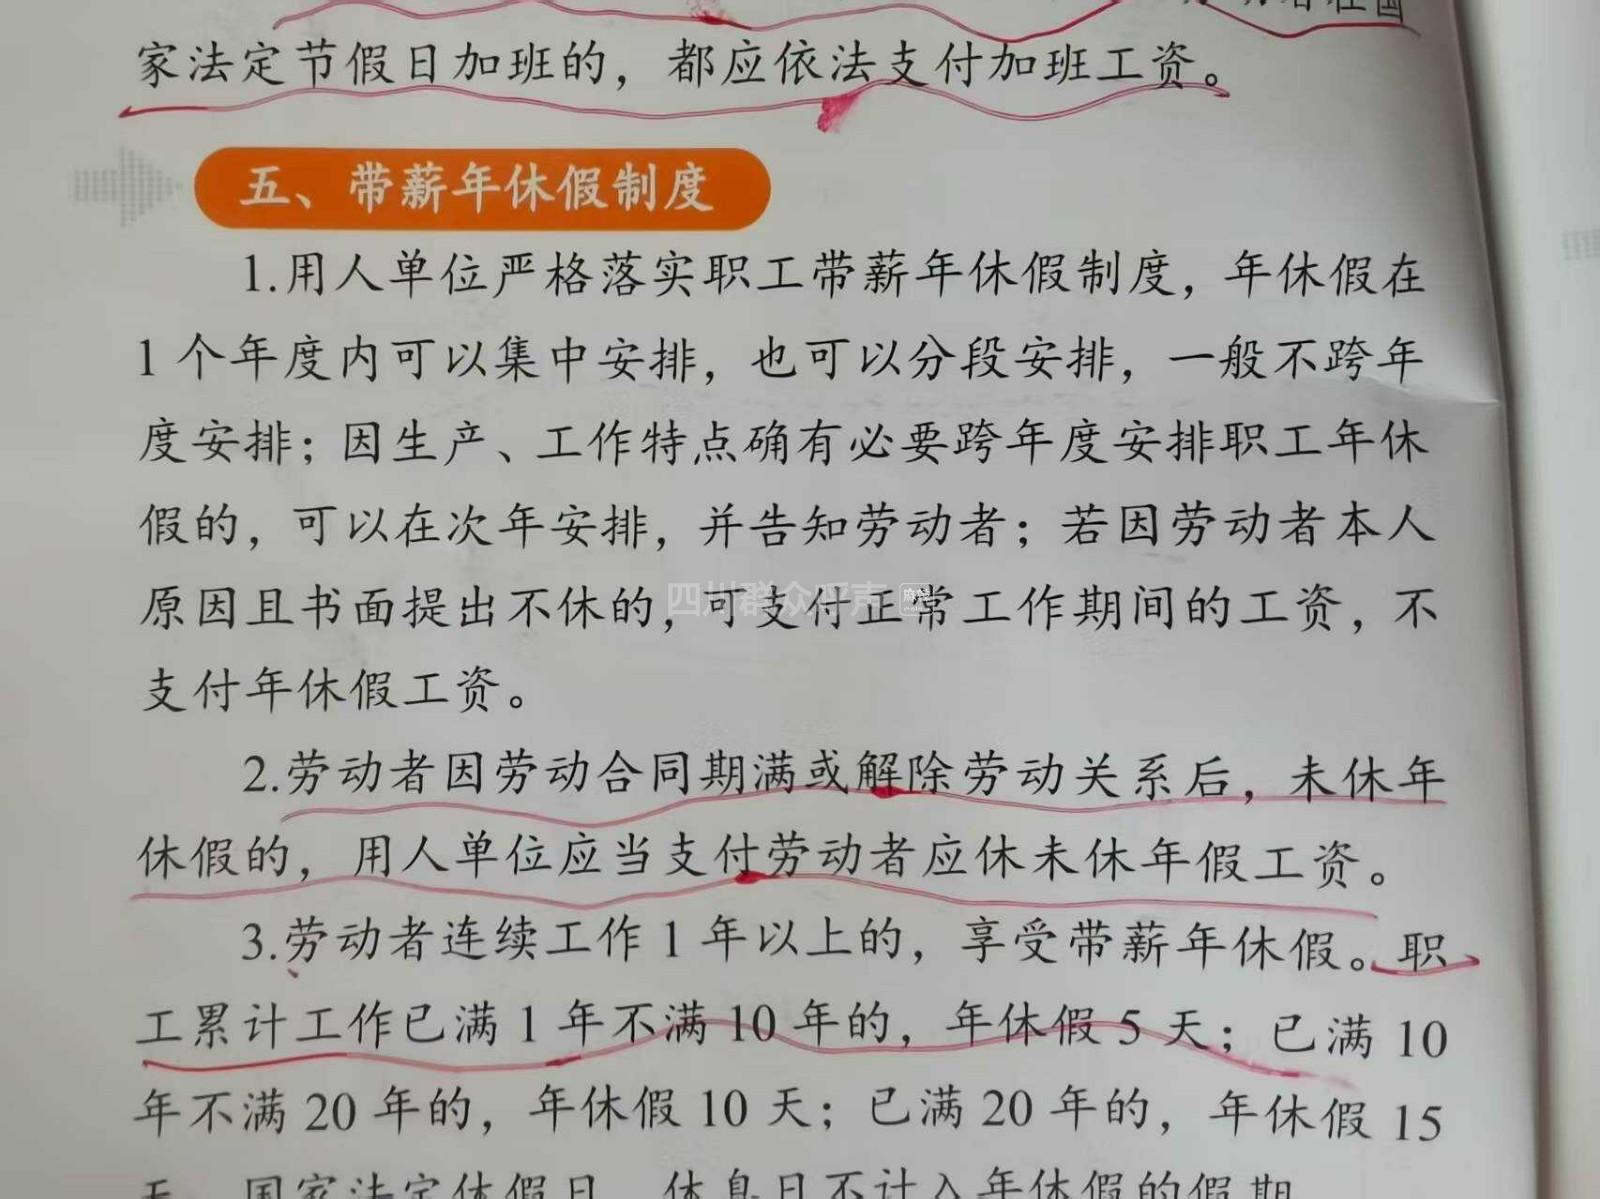 家法定节假日加班的，都应依法支付加班工资。
五、带薪年休假制度
1.用人单位严格落实职工带薪年休假制度，年休假在
1个年度内可以集中安排，也可以分段安排，一般不跨年
度安排；因生产、工作特点确有必要跨年度安排职工年休
假的，可以在次年安排，并告知劳动者；若因劳动者本人
原因且书面提出不休的，可支付正常工作期间的工资，不
四川群众呼声
支付年休假工资。
2.劳动者因劳动合同期满或解除劳动关系后，未休年
休假的，用人单位应当支付劳动者应休未休年假工资。
3.劳动者连续工作1年以上的，享受带薪年休假。职
工累计工作已满1年不满10年的，年休假5天；已满10
年不满20年的，年休假10天；已满20年的，年休假15
天。国家法定休假日、休息日不计入年休假的假期